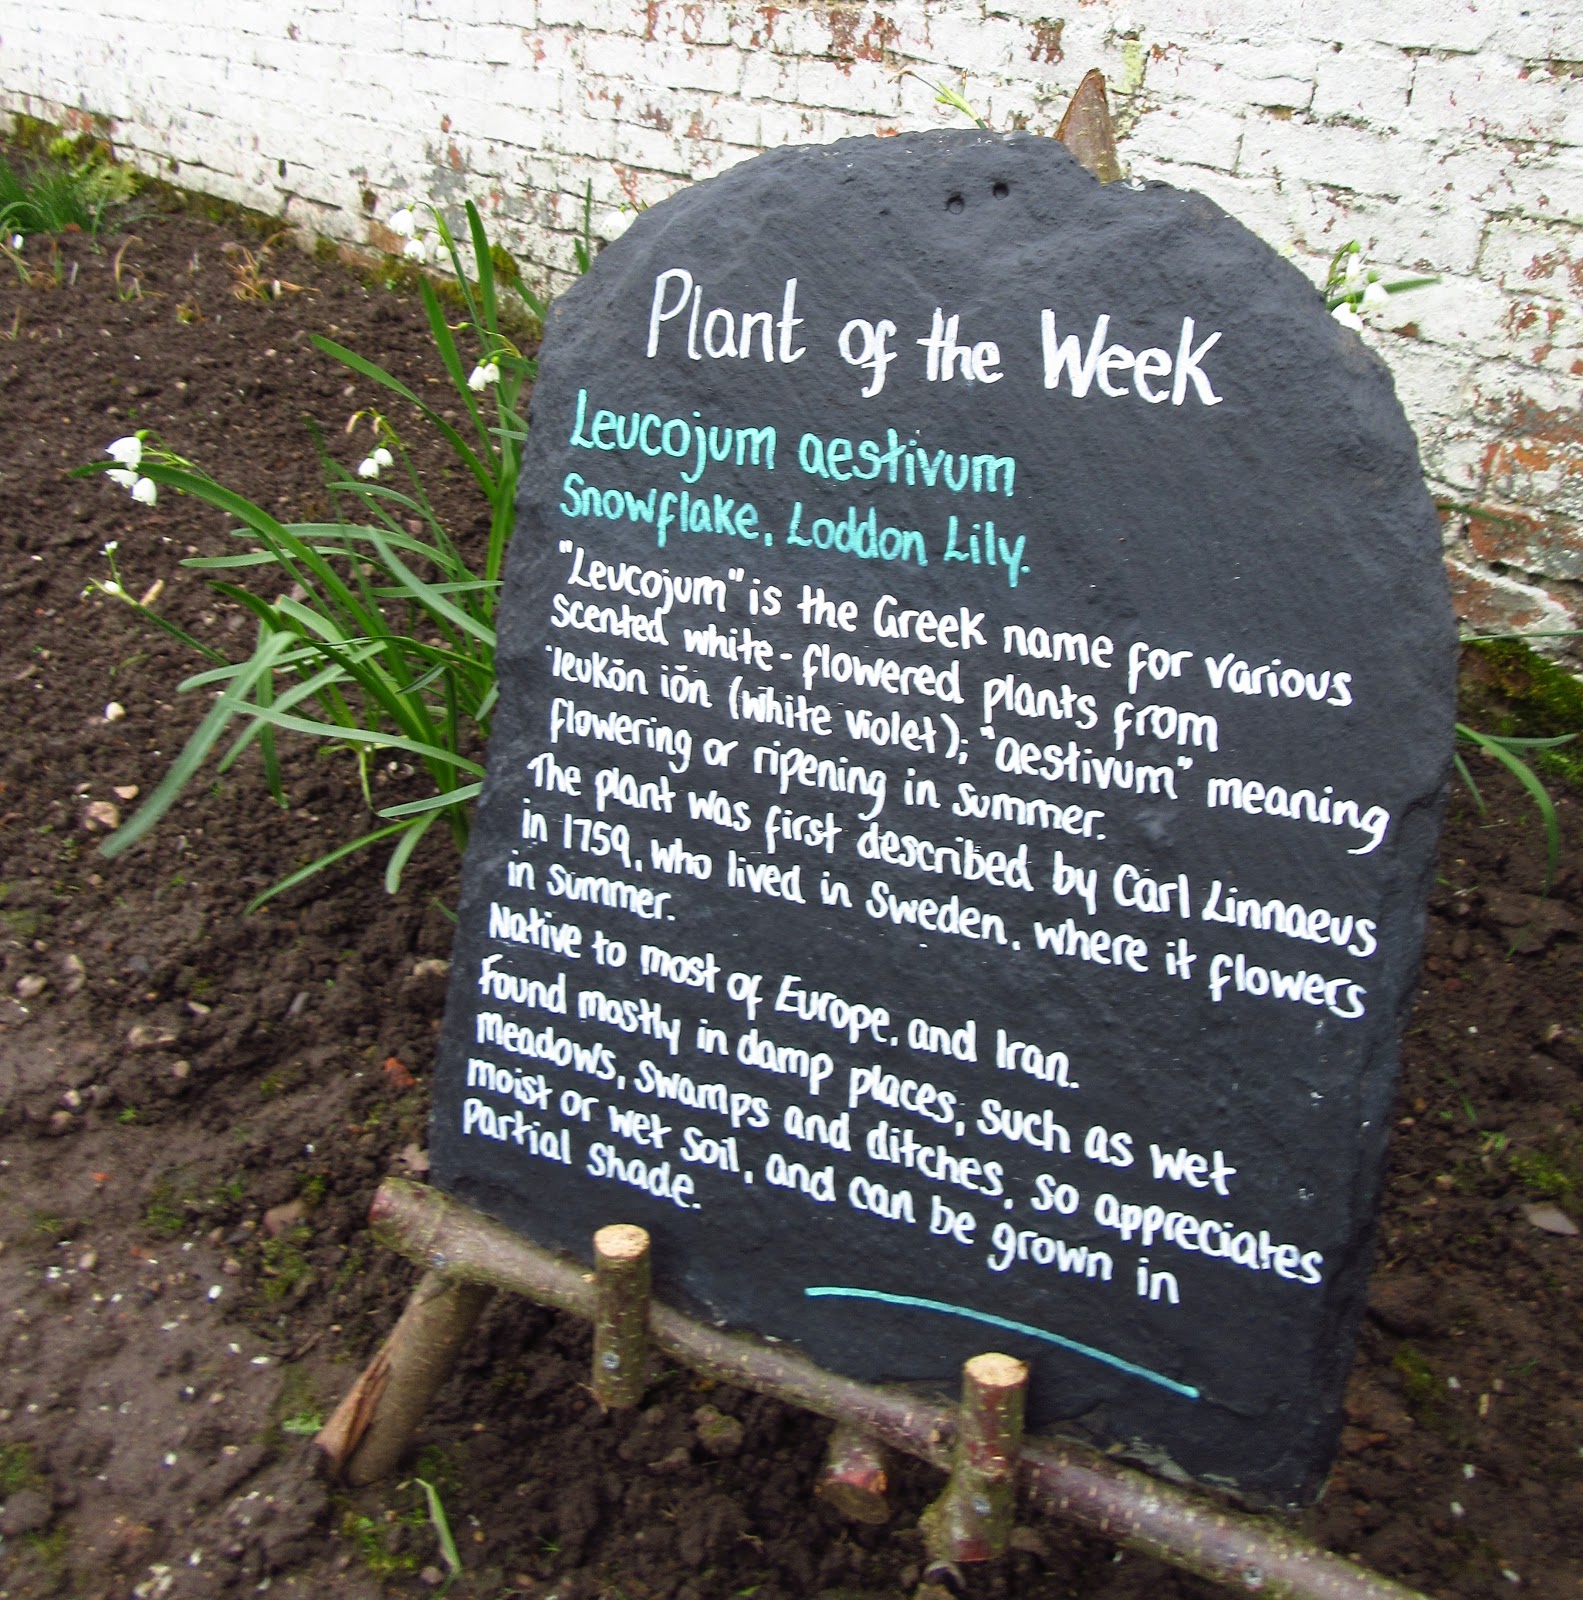 Plant of the Week
Leucojum aestivum
Snowflake, Loddon Lily.
"Leucojum" is the Greek name for various
scented white-flowered plants from
'leukōn iōn (white violet); "aestivum" meaning
flowering or ripening in summer.
The plant was first described by Carl Linnaeus
in 1759, who lived in Sweden, where it flowers
in summer.
Native to most of Europe, and Iran.
Found mostly in damp places, such as wet
meadows, swamps and ditches, so appreciates
moist or wet soil, and can be grown in
partial shade.